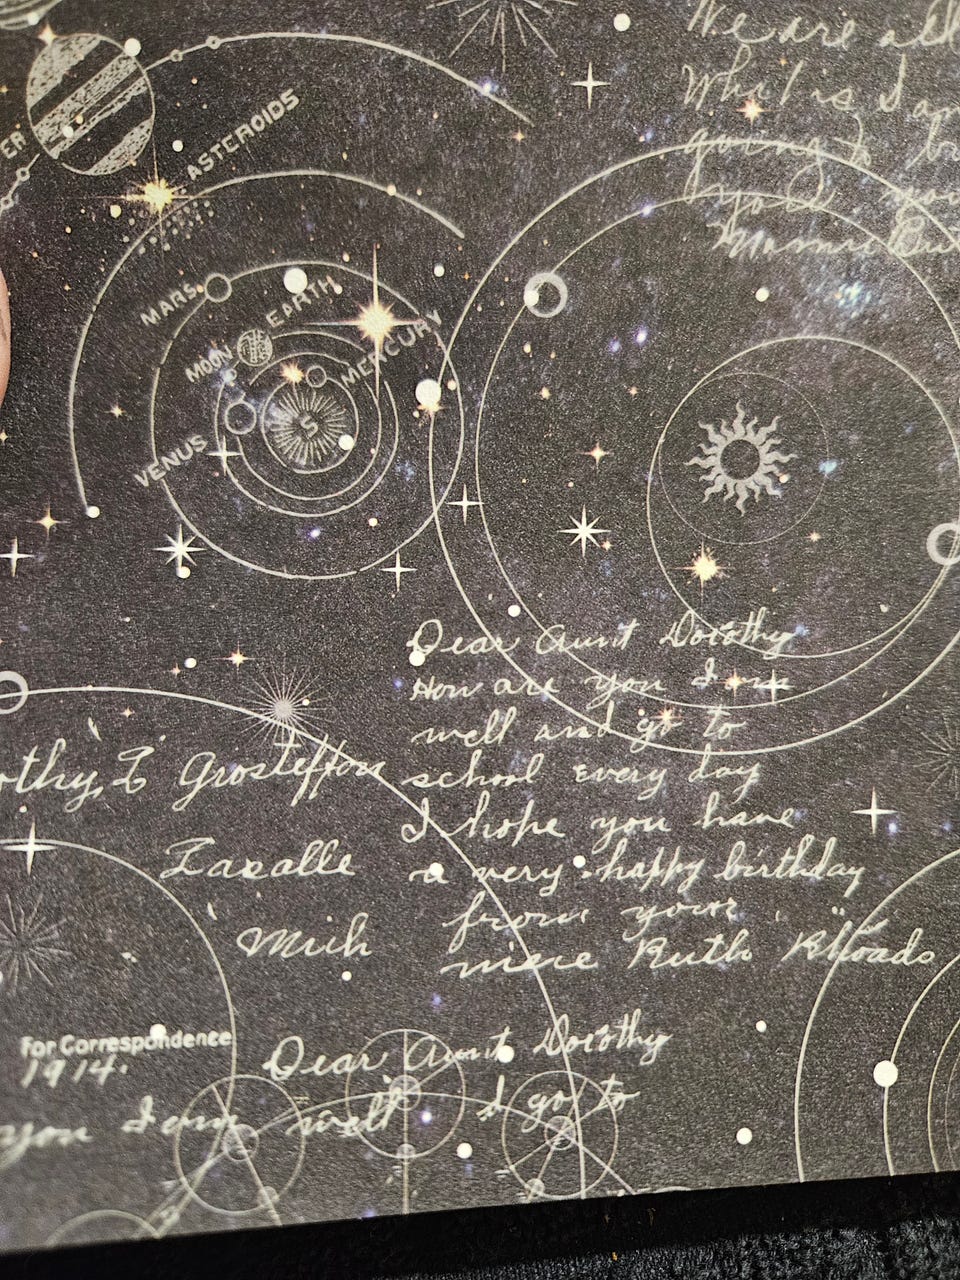 We are all
What is Dan
going to
you
ER
ASTEROIDS
MARS
EARTH
MOON
MERCURY
S
VENUS
Dear Aunt Dorothy
How are you I am
well and go to
school every day
I hope you have
a very happy birthday
from your
niece Ruth Rhoads
othy, L Grosteffon
Lasalle
Mich
For Correspondence
1914.
Dear Aunt Dorothy
you I am well I go to